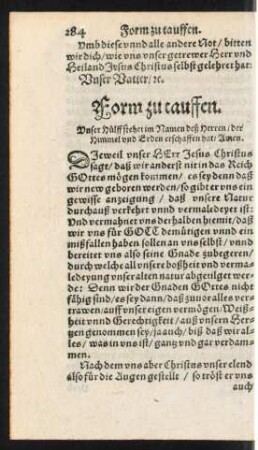 284 Form zu tauffen.
Vmb diese vnnd alle andere Not / bitten
wir dich / wie vns vnser getrewer Herr vnd
Heiland Jesus Christus selbst gelehret hat:
Vnser Vatter / ꝛc.
Form zu tauffen.
Vnser Hülff stehet im Namen deß Herren / der
Himmel vnd Erden erschaffen hat / Amen.
DJeweil vnser HErr Jesus Christus
sagt / daß wir anderst nit in das Reich
GOttes mögen kommen / es sey denn daß
wir new geboren werden / so gibt er vns ein
gewisse anzeigung / daß vnsere Natur
durchauß verkehrt vnnd vermaledeyet ist:
Vnd vermahnet vns derhalben hiemit / daß
wir vns für GOTT demütigen vnnd ein
mißfallen haben sollen an vns selbst / vnnd
bereitet vns also seine Gnade zubegeren /
durch welche all vnsere boßheit vnd verma-
ledeyung vnser alten natur abgetilget wer-
de: Denn wir der Gnaden GOttes nicht
fähig sind / es sey dann / daß zuuor alles ver-
trawen / auff vnser eigen vermögen / Weiß-
heit vnnd Gerechtigkeit / auß vnsern Her-
tzen genommen sey / ja auch / biß daß wir al-
les / was in vns ist / gantz vnd gar verdam-
men.
Nach dem vns aber Christus vnser elend
also für die Augen gestellt / so tröst er vns
auch